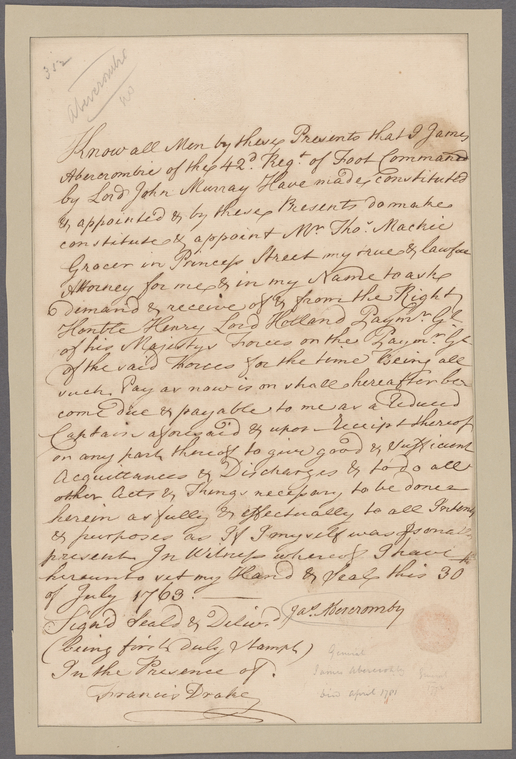 312
Abercrombie
Know all Men by these Presents that I James
Abercrombie of the 42d Regt. of Foot Commanded
by Lord John Murray Have made Constituted
& appointed & by these Presents do make
constitute & appoint Mr. Thos. Mackie
Grocer in Princess Street my true & lawfull
Attorney for me & in my Name to ask
Demand & receive of & from the Right
Honble Henry Lord Holland Paymr. Gl.
of his Majestys Forces or the Paymr. Gl.
of the said Forces for the time Being all
such Pay as now is or shall hereafter be
come due & payable to me as a reduced
Captain aforesaid & upon receipt thereof
or any part thereof to give good & sufficient
Acquittances & Discharges & to do all
other Acts & Things necessary to be done
herein as fully & effectually to all Intents
& purposes as If I myself was personally
present In Witness whereof I have
hereunto set my Hand & Seal this 30
of July 1763.
Sign'd Seald & Deliver'd Jas. Abercromby
(being first duly Stampt)
In the Presence of.
Francis Drake
General
James Abercrombie
Died April 1781